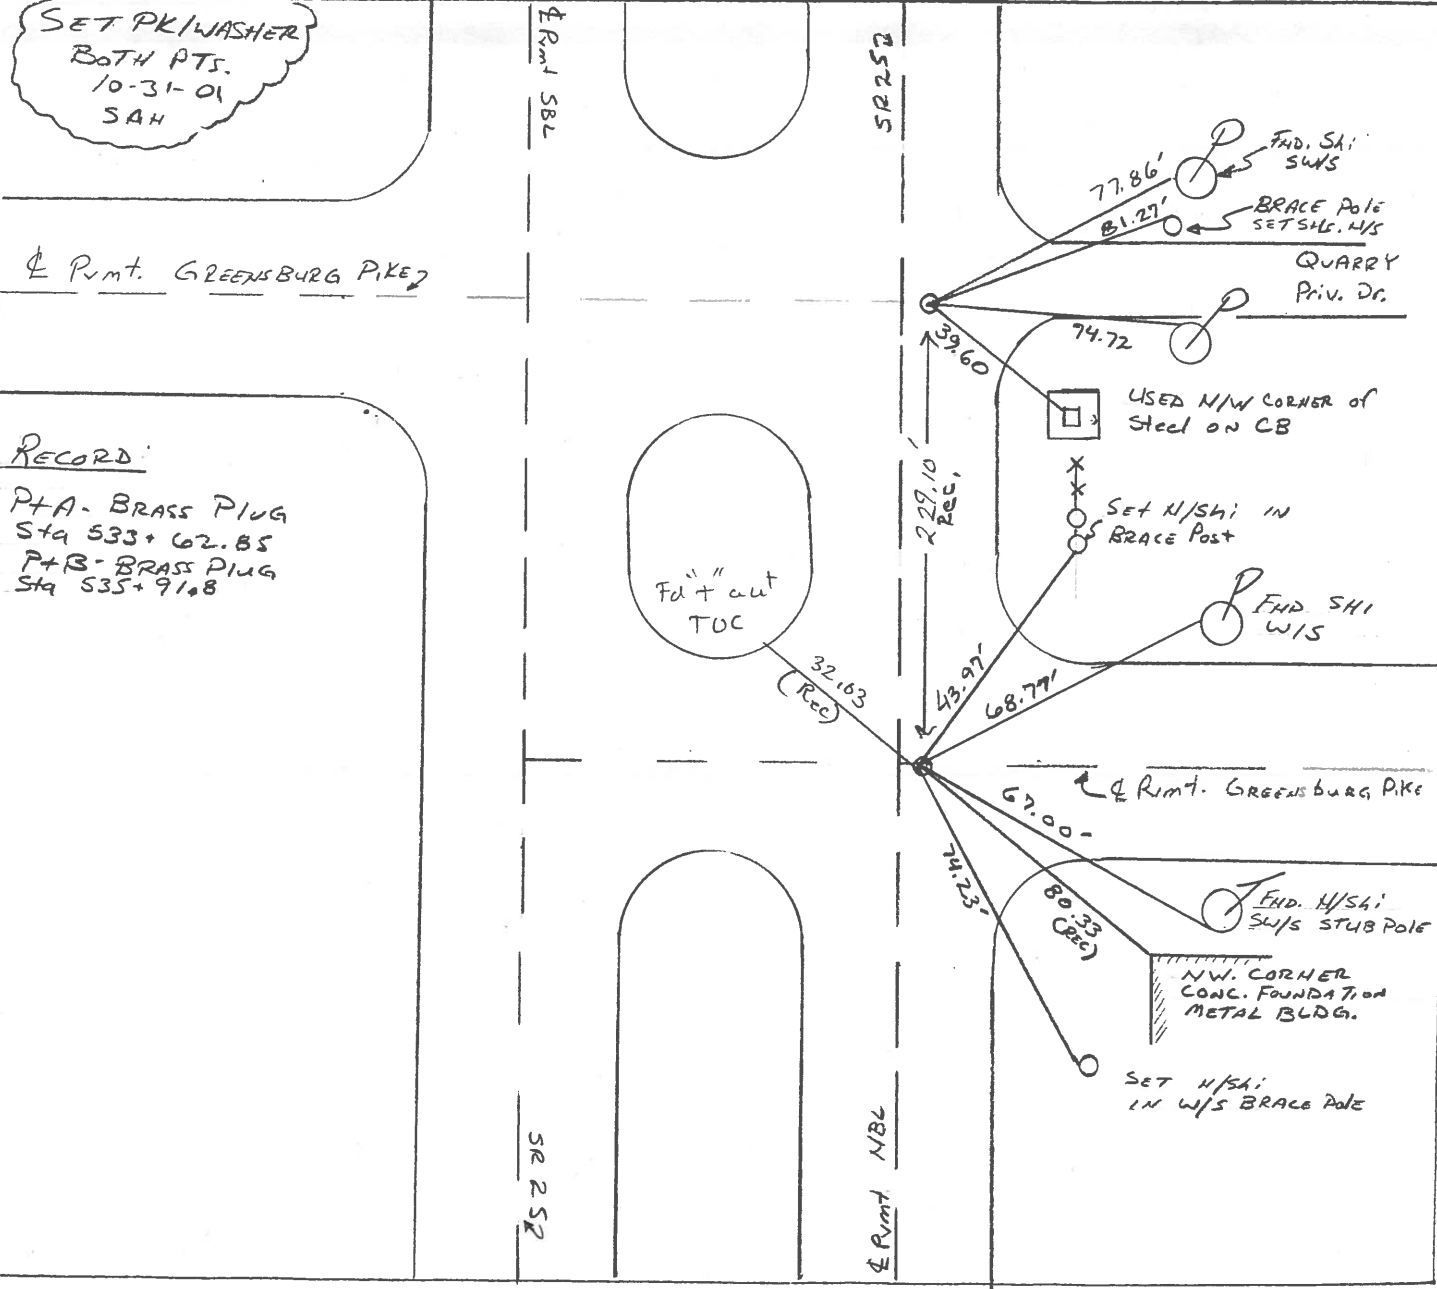 SET PK/WASHER
BOTH PTS.
10-31-01
SAH
℄ Pvmt SBL
SR 252
77.86'
FND. Shi
SW/S
81.27'
BRACE Pole
SET SHi. N/S
℄ Pvmt. GREENSBURG PIKE
QUARRY
Priv. Dr.
39.60
74.72
USED N/W CORNER of
Steel ON CB
RECORD:
Pt A - BRASS PLUG
Sta 533+62.85
Pt B - BRASS PLUG
Sta 535+91.8
229.10'
REC.
SET N/Shi IN
BRACE Post
Fd "+" cut
TOC
FND SHI
W/S
32.63
(REC)
43.97'
68.77'
℄ Pvmt. GREENSBURG PIKE
67.00-
74.23'
80.33
(REC)
FND. N/Shi
SW/S STUB POLE
NW. CORNER
CONC. FOUNDATION
METAL BLDG.
SET N/Shi
IN W/S BRACE Pole
SR 252
℄ Pvmt NBL